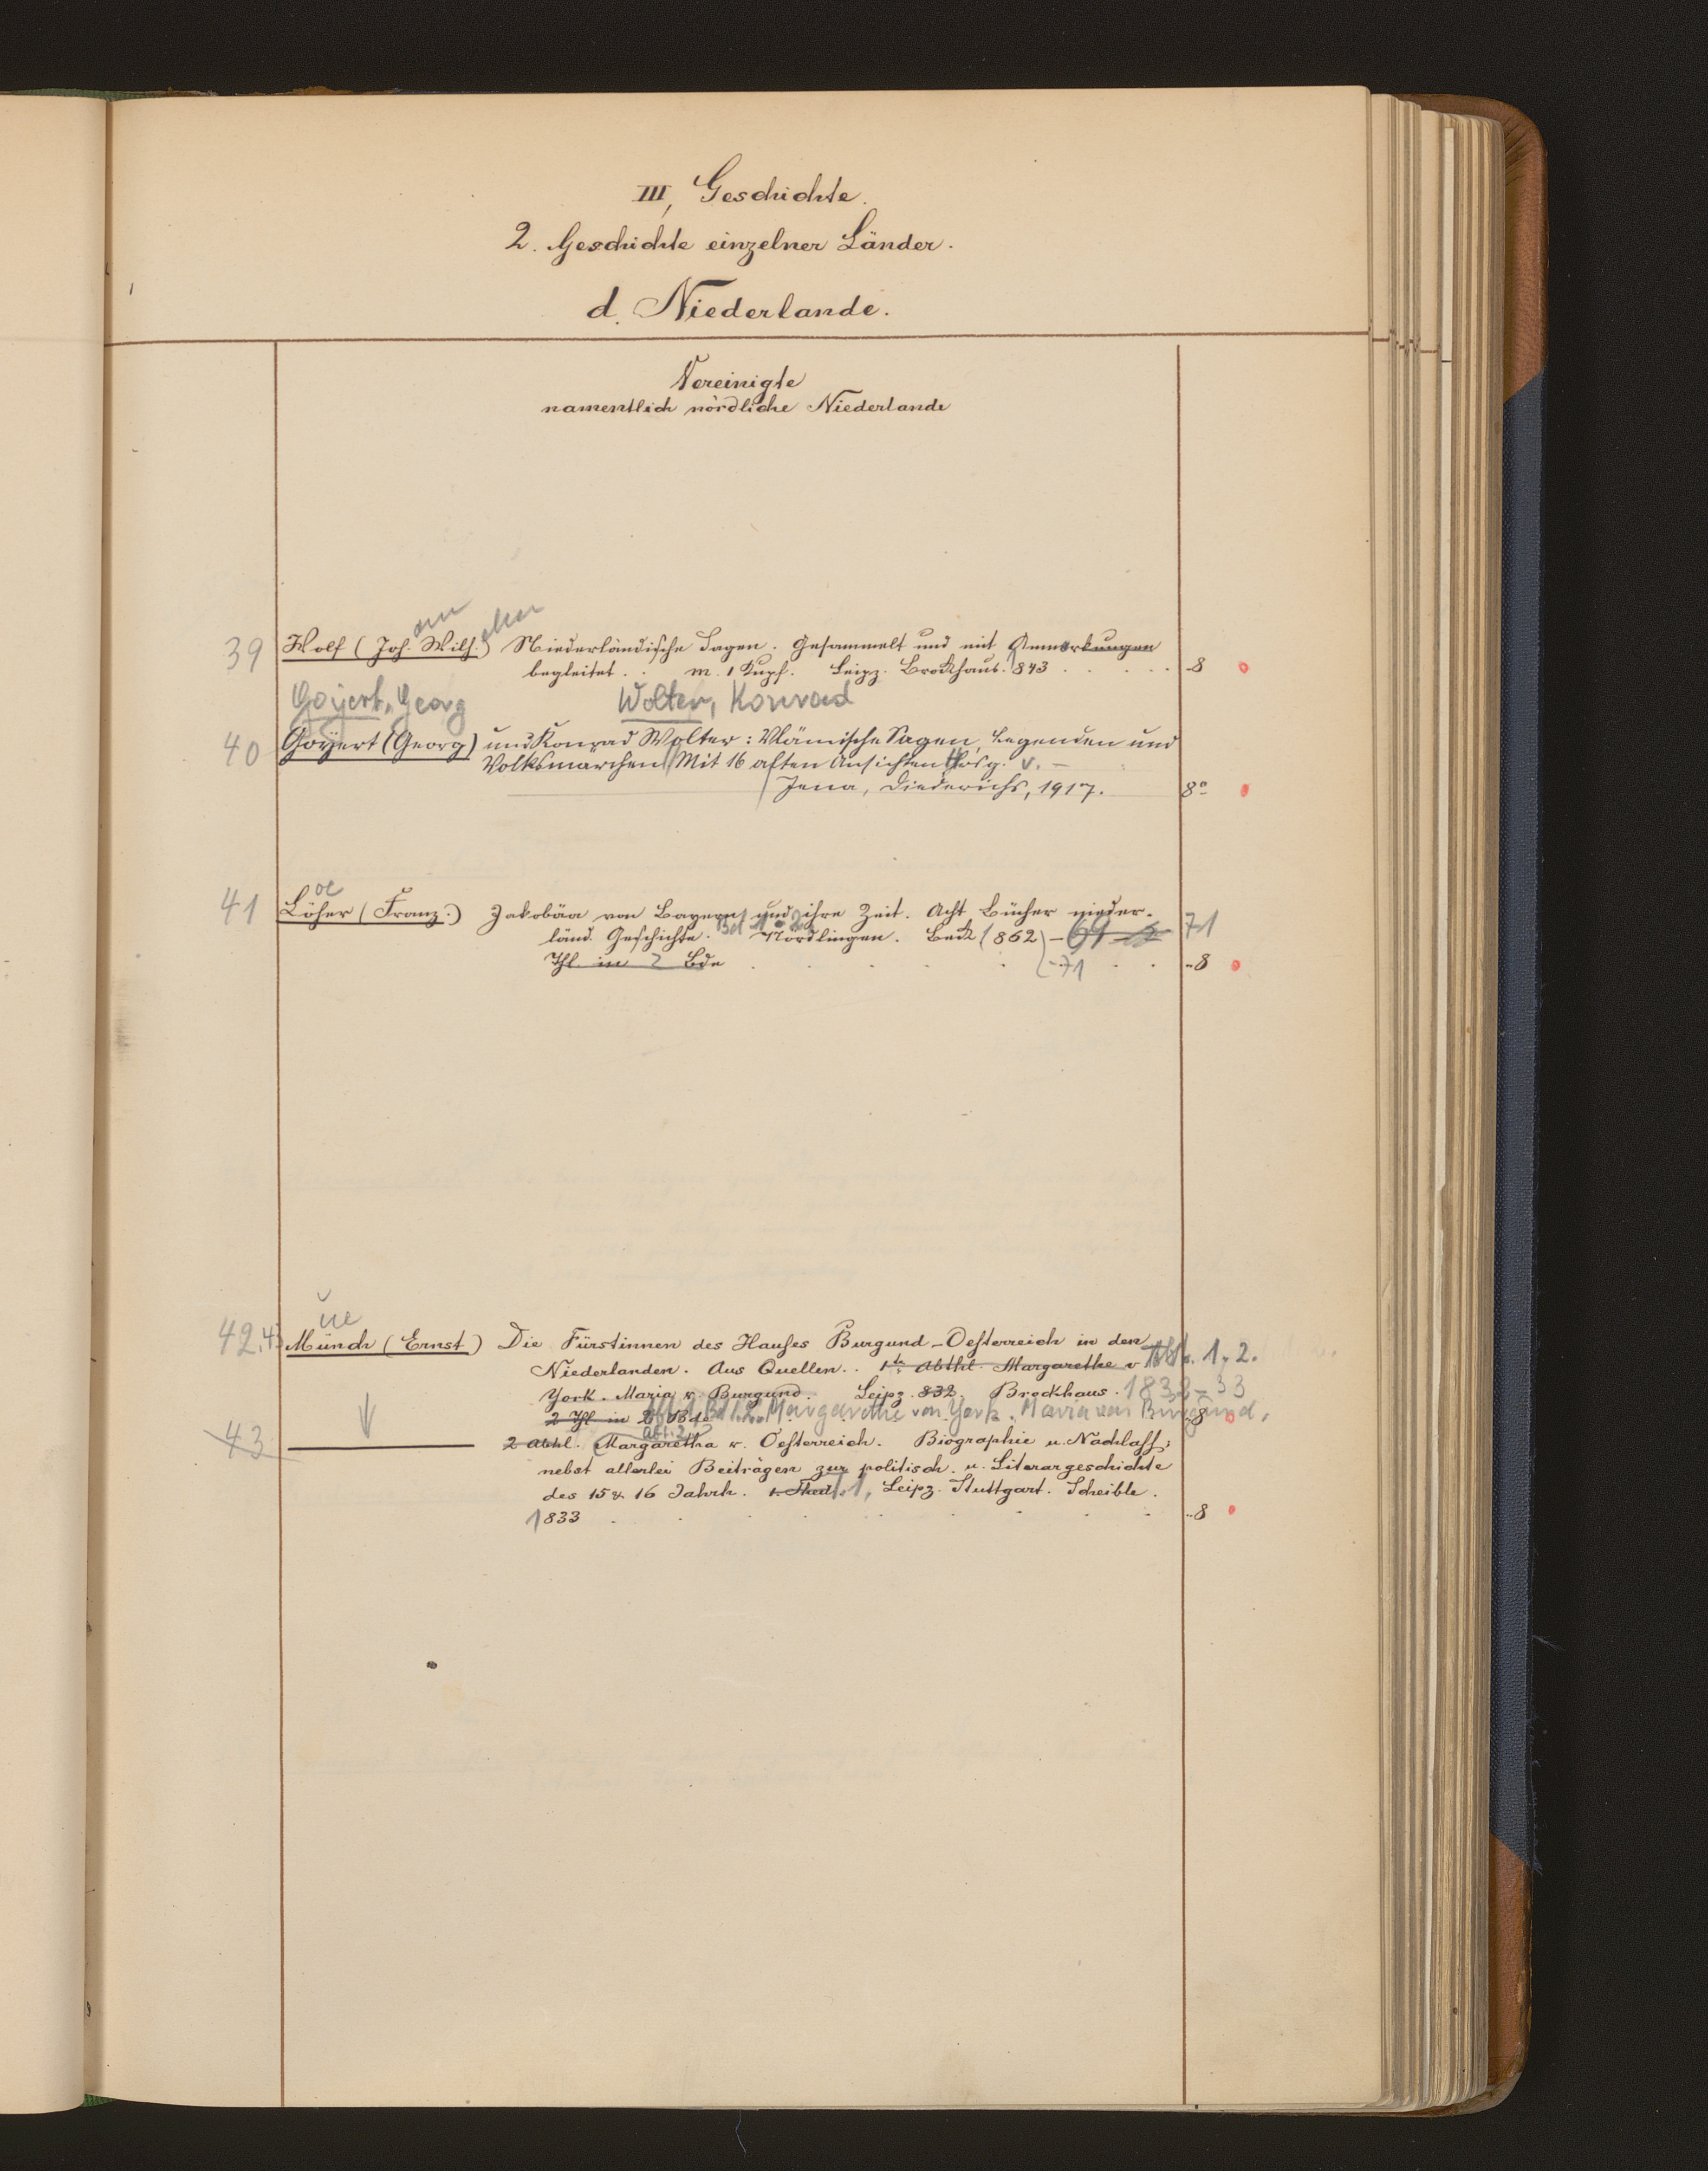 III, Geschichte.
2. Geschichte einzelner Länder.
d. Niederlande.
Vereinigte
namentlich nördliche Niederlande
39 Wolf (Joh. Wilh.) Niederländische Sagen. Gesammelt und mit Anmerkungen
begleitet . . m. 1 Kupf. Leipz. Brockhaus. 1843 8
Goyert, Georg Wolter, Konrad
40 Goyert (Georg) und Konrad Wolter: Vlämische Sagen, Legenden und
Volksmärchen Mit 16 alten Ansichten Hrsg. v. –
Jena, Diederichs, 1917. 8°
oe
41 Löher (Franz.) Jakobäa von Bayern und ihre Zeit. Acht Bücher nieder-
länd. Geschichte. Bd 1 2 Nördlingen. Beck 1862 – 69 71
Thl. in 2 Bde -71 8
ue
42.43 Münch (Ernst) Die Fürstinnen des Hauses Burgund-Oesterreich in den
Niederlanden. Aus Quellen. . 1te Abthl. Margarethe v Abt. 1. 2.
York. Maria v. Burgund. Leipz. 832. Brockhaus. 1832-33
2 Thl in 2 Bde Abt. 1, Bd 1.2. Margarethe von York. Maria von Burgund. 8
Abt. 2
43 2 Abthl. Margaretha v. Oesterreich. Biographie u. Nachlass;
nebst allerlei Beiträgen zur politisch. u. Literargeschichte
des 15 & 16 Jahrh. 1. Theil. 1, Leipz. Stuttgart. Scheible.
1833 8